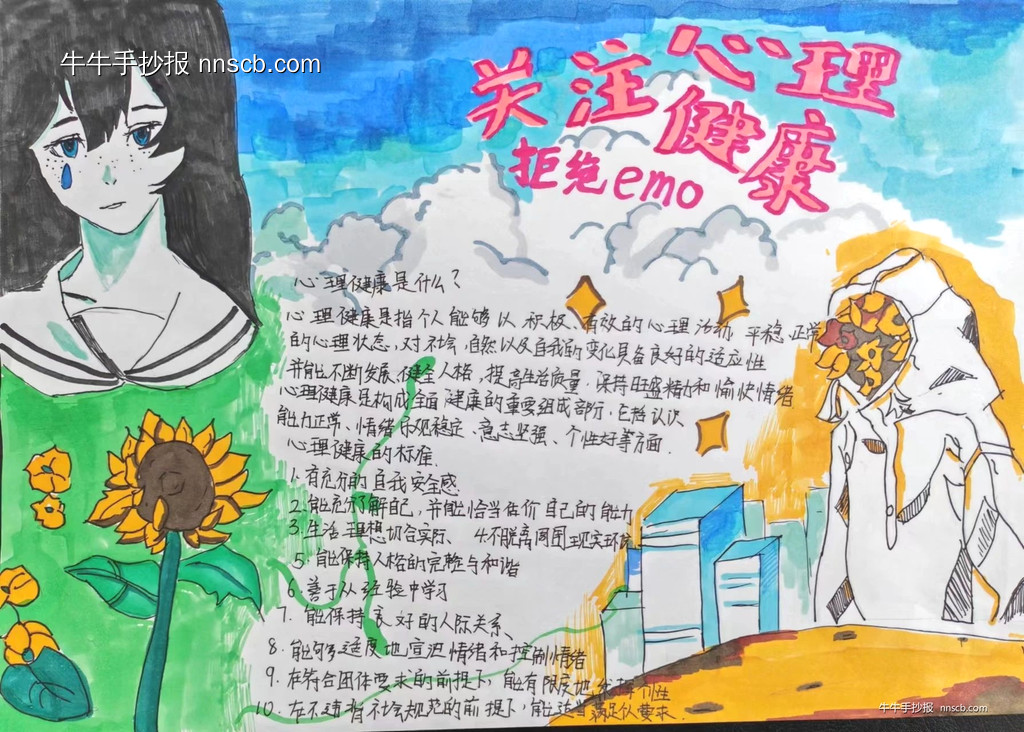 牛牛手抄报 nnscb.com
关注心理
健康
拒绝emo
心理健康是什么?
心理健康是指个人能够以积极、有效的心理活动 平稳.正常
的心理状态,对社会.自然以及自我的变化具备良好的适应性
并能不断发展.健全人格,提高生活质量.保持旺盛精力和愉快情绪
心理健康是构成全面健康的重要组成部分,包括认识
能力正常、情绪乐观稳定、意志坚强、个性好等方面.
心理健康的标准.
1.有充分的自我安全感
2.能充分了解自己,并能恰当估价自己的能力
3.生活理想切合实际、 4.不脱离周围现实环境
5.能保持人格的完整与和谐
6.善于从经验中学习
7.能保持良好的人际关系、
8.能够适度地宣泄情绪和控制情绪
9.在符合团体要求的前提下,能有限度地发挥个性
10.在不违背社会规范的前提下,能适当满足个人要求.
牛牛手抄报 nnscb.com